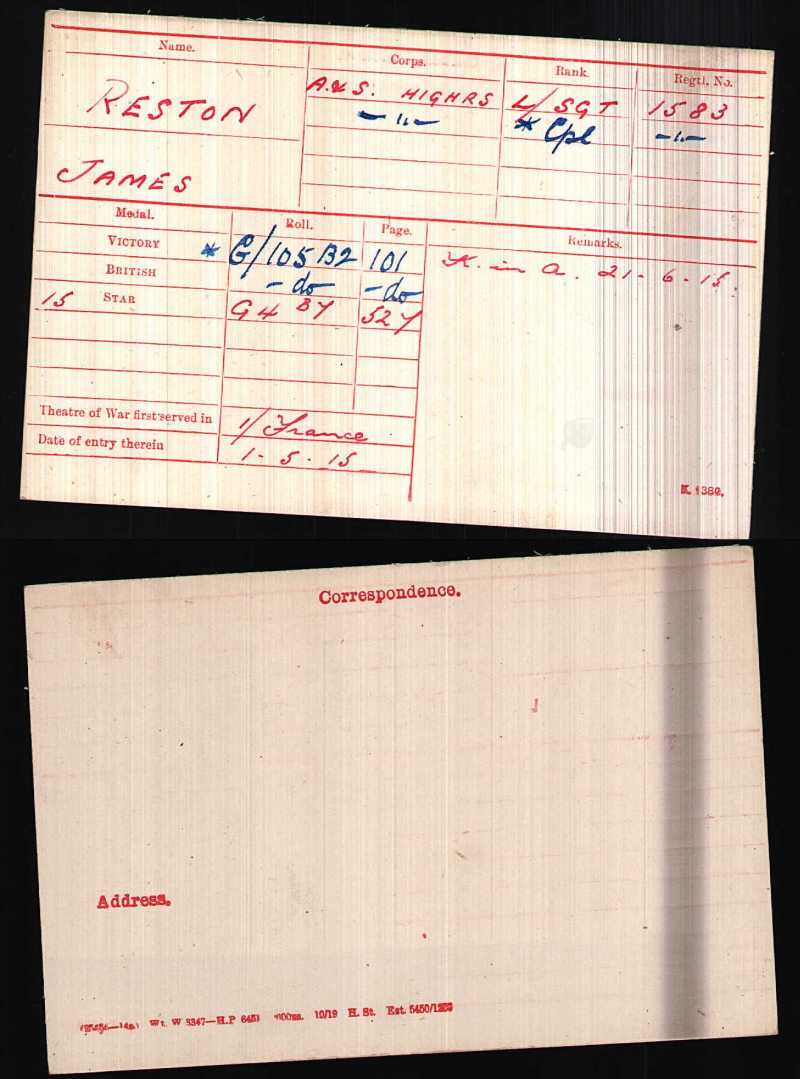 Name. Corps. Rank. Regtl. No.
RESTON A.&S. HIGHRS L/SGT 1583
— " — * Cpl — " —
JAMES
Medal. Roll. Page. Remarks.
VICTORY * G/105 B2 101 K. in A. 21-6-15.
BRITISH - do - do
15 STAR G4 B7 527
Theatre of War first served in 1/France
Date of entry therein 1-5-15
K. 1380.
Correspondence.
Address.
Wt. W 3347—H.P 10/19 H. St. Est.